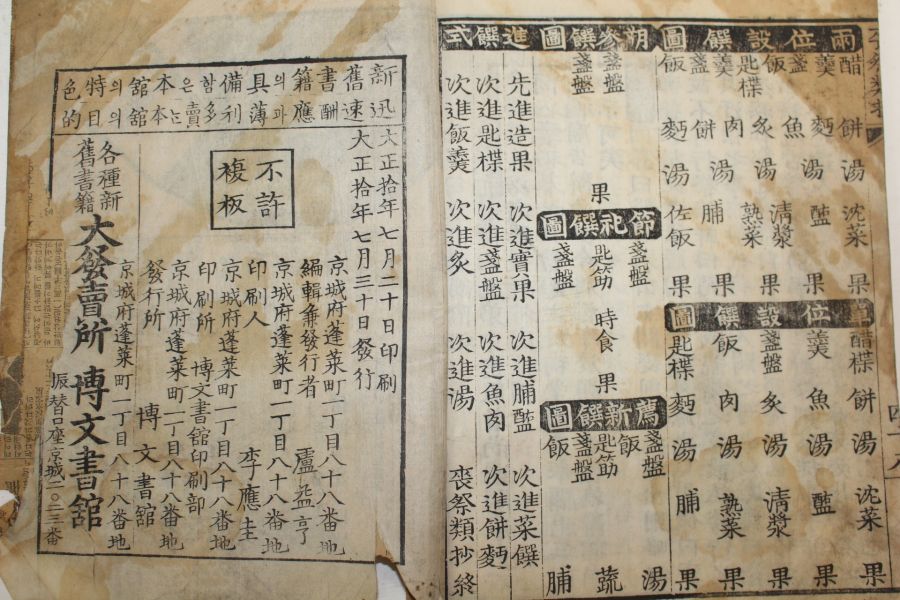 兩位設饌圖
醋 餠 湯 沈菜 果
羹 麪 醢 果
盞 魚
飯 炙 湯 淸漿 果
匙楪 熟菜
羹 肉
盞 餠 湯 脯 果
飯 麪 湯 佐飯 果
單位設饌圖
醋楪 餠 湯 沈菜 果
羹 魚 醢 果
盞盤 炙 湯 淸漿 果
飯 肉 熟菜 果
匙楪 麪 湯 脯 果
朔參饌圖
盞盤 盞盤
果
節祀饌圖
盞盤 匙筯 盞盤
時食
果
薦新饌圖
盞盤 匙筯 盞盤
飯 飯
湯 蔬 脯
進饌式
先進造果 次進實果 次進脯醢 次進菜饌
次進匙楪 次進盞盤 次進魚肉 次進餠麪
次進飯羹 次進炙 次進湯 喪祭類抄終
新舊書籍의具備함은本舘의特色
迅速酬應과薄利多賣는本舘의目的
大正拾年七月二十日印刷
大正拾年七月三十日發行
不許
複板
京城府蓬萊町一丁目八十八番地
編輯兼發行者 盧益亨
京城府蓬萊町一丁目八十八番地
印刷人 李應圭
京城府蓬萊町一丁目八十八番地
印刷所 博文書舘印刷部
京城府蓬萊町一丁目八十八番地
發行所 博文書舘
京城府蓬萊町一丁目八十八番地
各種新舊書籍 大發賣所 博文書舘
振替口座京城二〇二三番